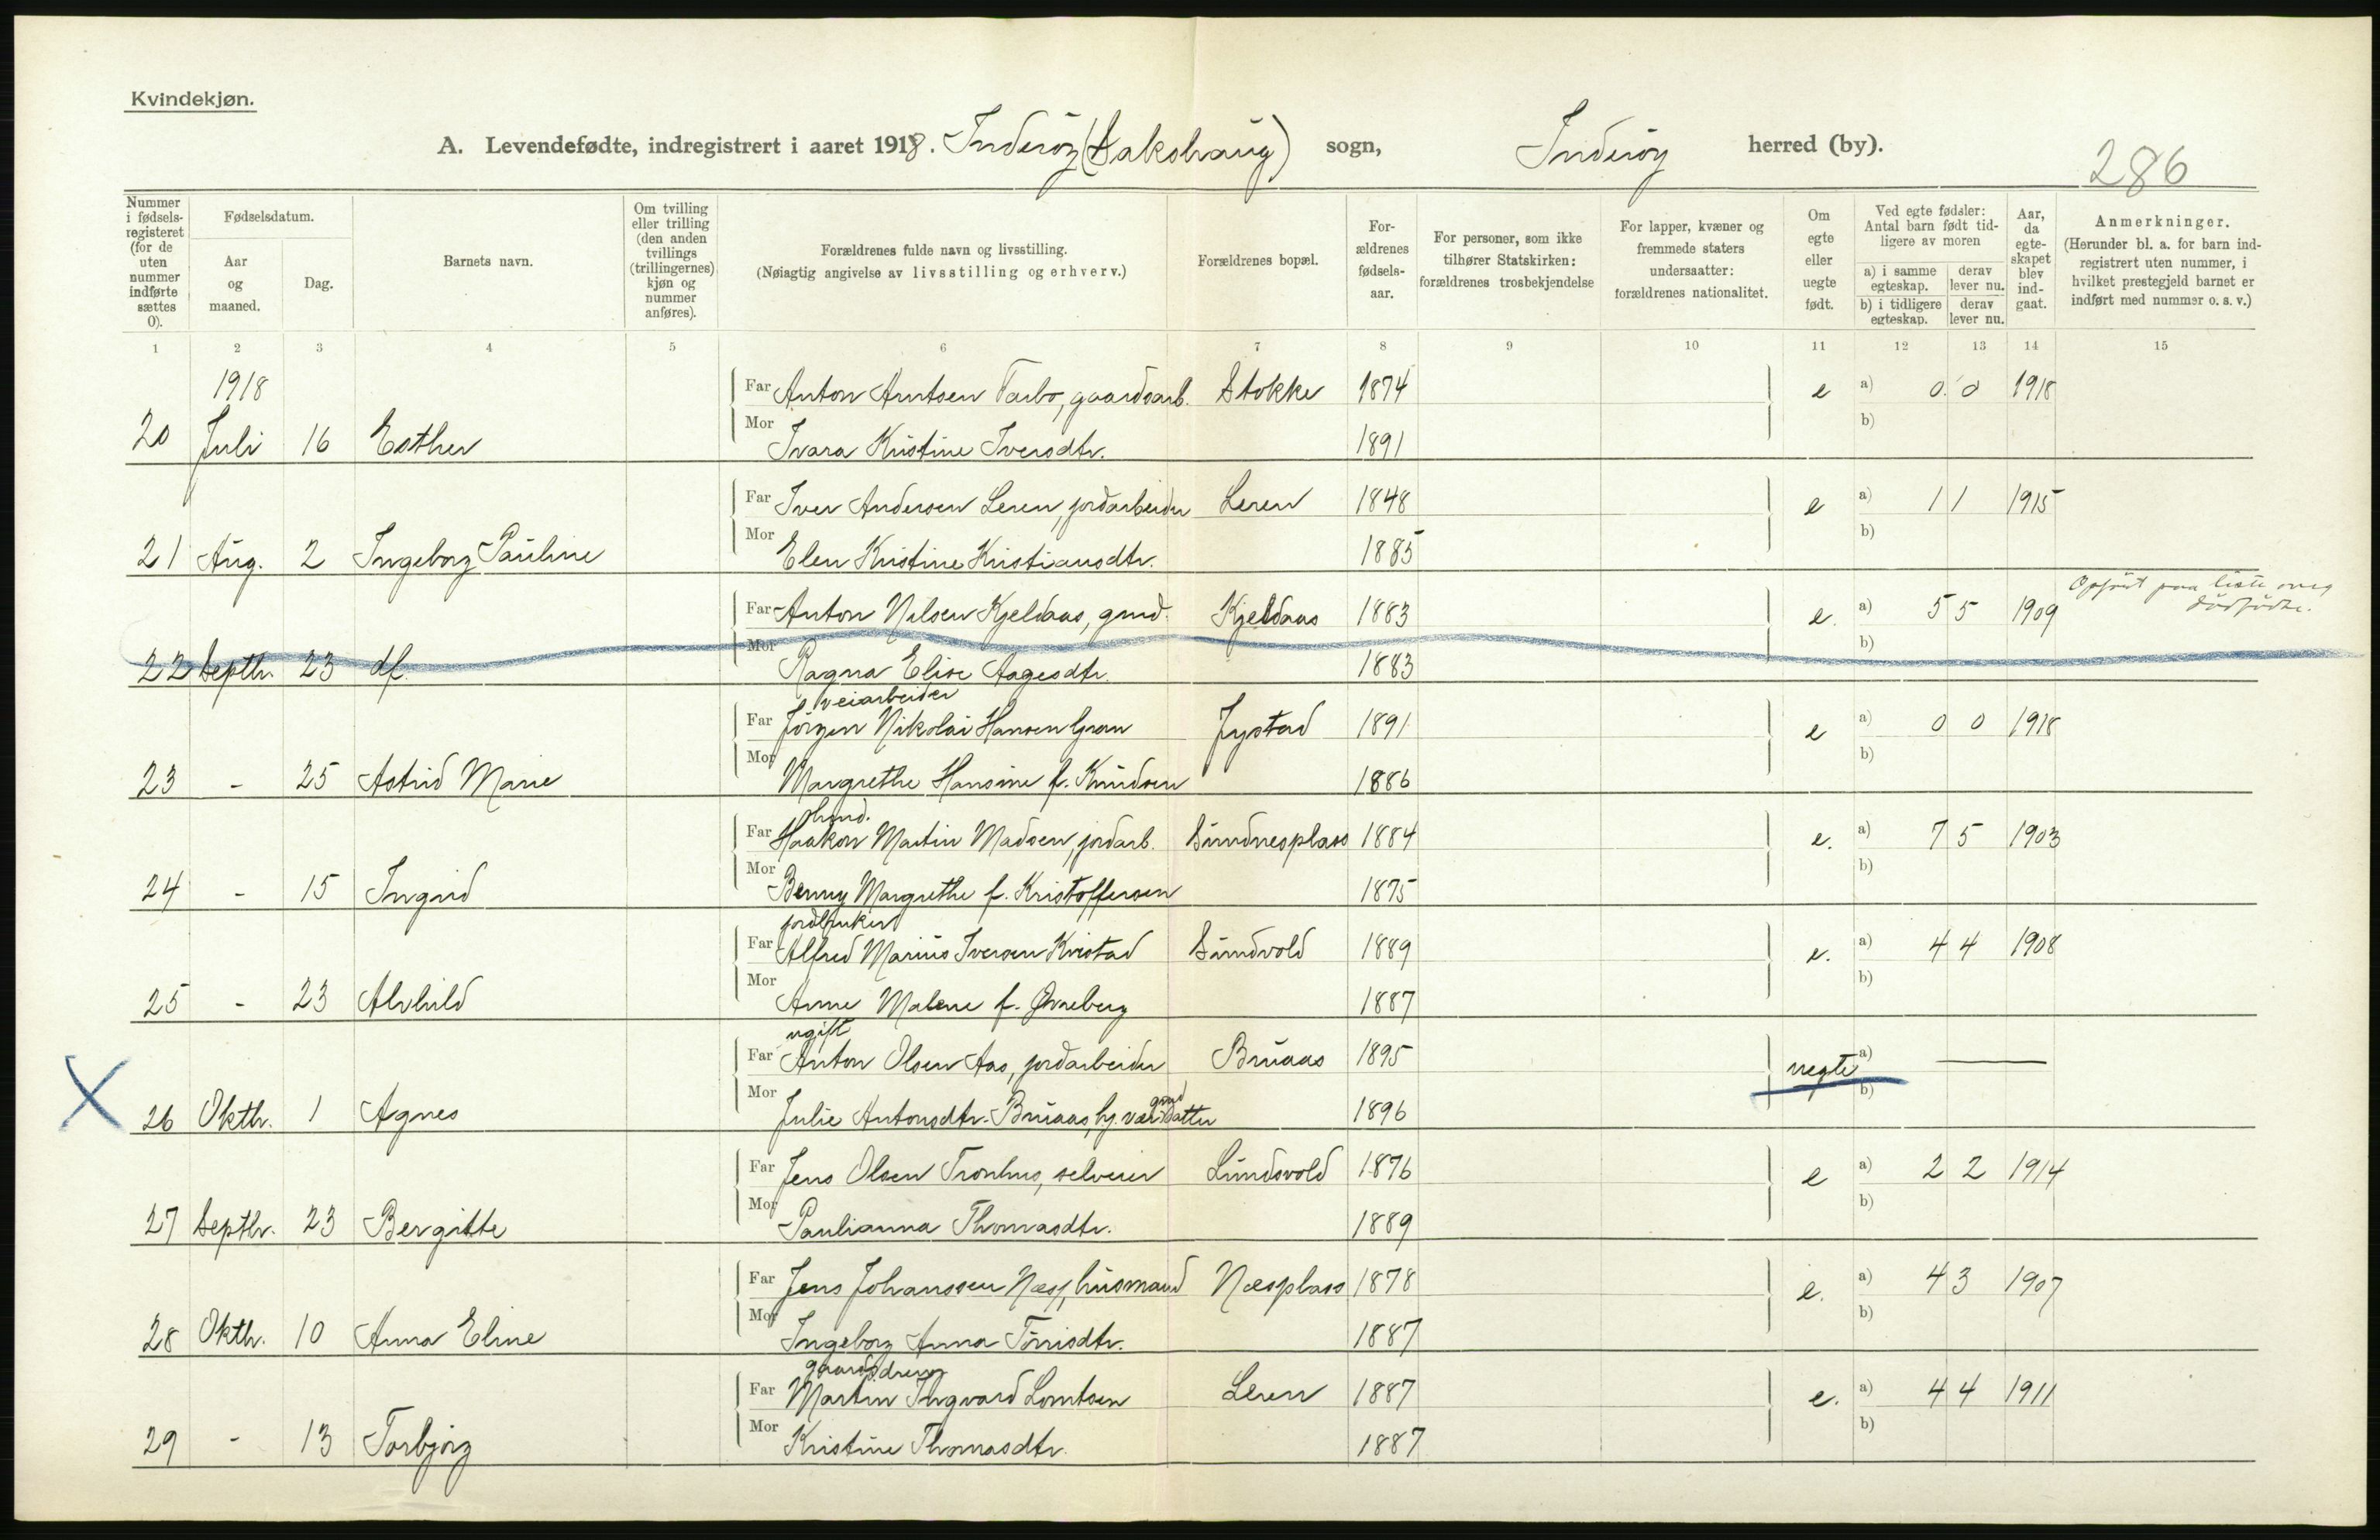 Kvindekjøn.
A. Levendefødte, indregistrert i aaret 1918. Inderöy (Sakshaug) sogn, Inderöy herred (by). 286
Nummer i fødselsregisteret (for de uten nummer indførte sættes 0).
Fødselsdatum.
Aar og maaned.
Dag.
Barnets navn.
Om tvilling eller trilling (den anden tvillings (trillingernes) kjøn og nummer anføres).
Forældrenes fulde navn og livsstilling.
(Nøiagtig angivelse av livsstilling og erhverv.)
Forældrenes bopæl.
Forældrenes fødselsaar.
For personer, som ikke tilhører Statskirken: forældrenes trosbekjendelse
For lapper, kvæner og fremmede staters undersaatter: forældrenes nationalitet.
Om egte eller uegte født.
Ved egte fødsler: Antal barn født tidligere av moren
a) i samme egteskap. derav lever nu.
b) i tidligere egteskap. derav lever nu.
Aar, da egteskapet blev indgaat.
Anmerkninger.
(Herunder bl. a. for barn indregistrert uten nummer, i hvilket prestegjeld barnet er indført med nummer o. s. v.)
1 2 3 4 5 6 7 8 9 10 11 12 13 14 15
1918
Far Anton Arntsen Tarbo, gaardsarb. Stokke 1874 e a) 0 0 1918
20 Juli 16 Esther Mor Ivara Kristine Iversdtr. 1891 b)
Far Iver Andersen Leren, jordarbeider Leren 1848 e a) 1 1 1915
21 Aug. 2 Ingeborg Pauline Mor Elen Kristine Kristiansdtr. 1885 b)
Opført paa liste over dödfödte.
Far Anton Nilsen Kjeldaas, gmd. Kjeldaas 1883 e. a) 5 5 1909
22 Septbr. 23 df. Mor Ragna Elise Aagesdtr. 1883 b)
veiarbeider
Far Jörgen Nikolai Hansen Gran Jystad 1891 e a) 0 0 1918
23 - 25 Astrid Marie Mor Margrethe Hansine f. Knudsen 1886 b)
Far Haakon Martin Madsen, jordarb. Sundnesplass 1884 e. a) 7 5 1903
24 - 15 Ingrid Mor Benny Margrethe f. Kristoffersen 1875 b)
jordbruker
Far Alfred Marius Iversen Kvistad Sundvold 1889 e. a) 4 4 1908
25 - 23 Alvhild Mor Anne Malene f. Øvreberg 1887 b)
ugift
Far Anton Olsen Aas, jordarbeider Bruaas 1895 uegte a) —
gmd
26 Oktbr. 1 Agnes Mor Julie Antonsdtr. Bruaas, hj. vær. datter 1896 b)
Far Jens Olsen Tronhus, selveier Lundsvold 1876 e a) 2 2 1914
27 Septbr. 23 Bergitte Mor Paulianna Thomasdtr. 1889 b)
Far Jens Johanssen Næss, husmand Næsplass 1878 e. a) 4 3 1907
28 Oktbr. 10 Anna Eline Mor Ingeborg Anna Törrisdtr. 1887 b)
gaardsdreng
Far Martin Ingvard Lorntsen Leren 1887 e. a) 4 4 1911
29 - 13 Torbjörg Mor Kristine Thomasdtr. 1887 b)